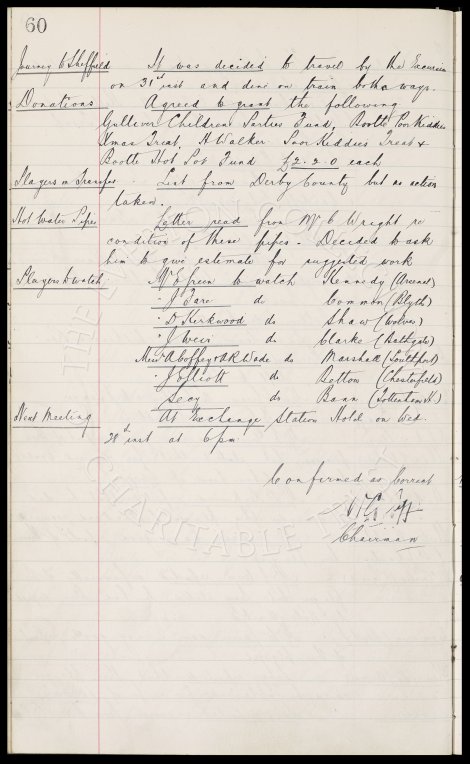 60
Journey to Sheffield It was decided to travel by the Excursion
on 31st inst and dine on train both ways.
Donations Agreed to grant the following
Gulliver Children Parties Fund, Bootle Poor Kiddies
Xmas Treat, H Walker Poor Kiddies Treat &
Bootle Hot Pot Fund £2-2-0 each
Players on Transfer List from Derby County but no action
taken.
Hot Water Pipes Letter read from Mr C Wright re
condition of these pipes - Decided to ask
him to give estimate for suggested work
Players to watch Mr E Green to watch Kennedy (Arsenal)
" J Fare do Common (Blyth)
" D Kirkwood do Shaw (Wolves)
" J Weir do Clarke (Bathgate)
Messrs A Coffey & A R Wade do Marshall (Southport)
" J Elliott do Betton (Chesterfield)
Secy do Bann (Tottenham H)
Next Meeting At Exchange Station Hotel on Wed.
28th inst at 6pm
Confirmed as Correct
Chairman
THE
CHARITABLE